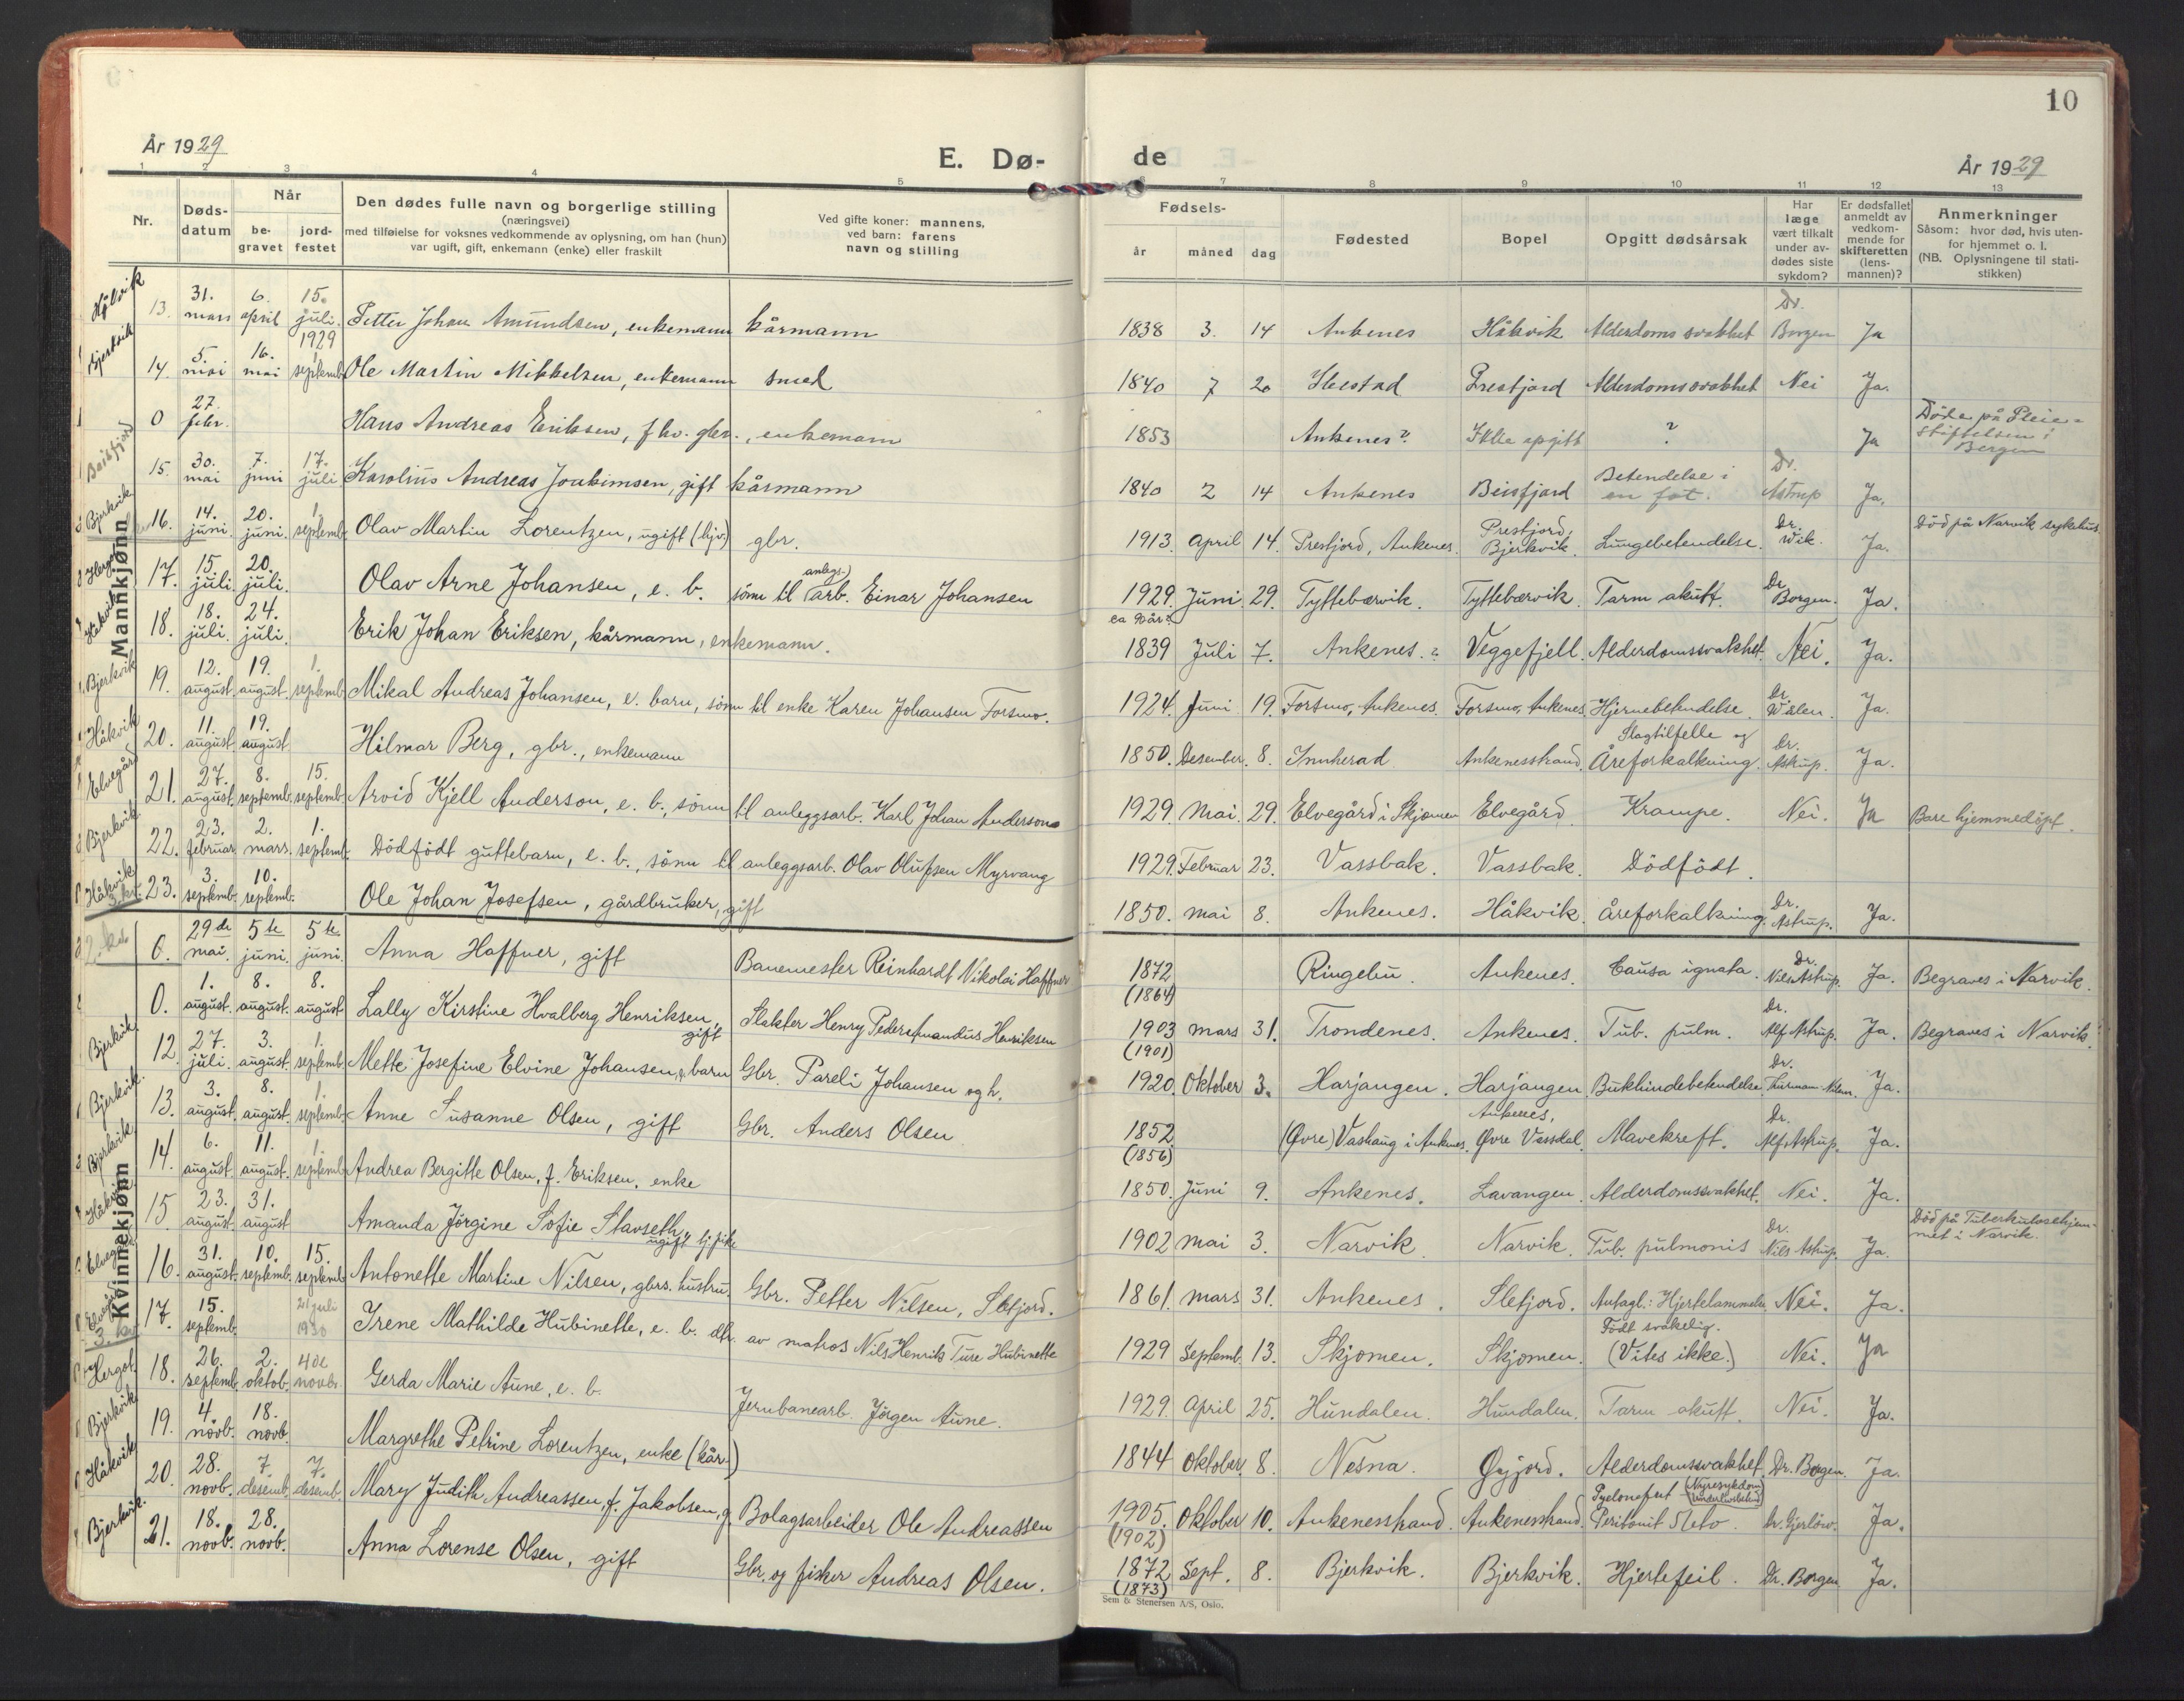 10
År 1929
E. Dø-
de
År 1929
1 2 3 4 5 6 7 8 9 10 11 12 13
Nr.
Døds-
datum
Når
be-
gravet
jord-
festet
Den dødes fulle navn og borgerlige stilling
(næringsvei)
med tilføielse for voksnes vedkommende av oplysning, om han (hun)
var ugift, gift, enkemann (enke) eller fraskilt
Ved gifte koner: mannens,
ved barn: farens
navn og stilling
Fødsels-
år
måned
dag
Fødested
Bopel
Opgitt dødsårsak
Har
læge
vært tilkalt
under av-
dødes siste
sykdom?
Er dødsfallet
anmeldt av
vedkom-
mende for
skifteretten
(lens-
mannen)?
Anmerkninger
Såsom: hvor død, hvis uten-
for hjemmet o. l.
(NB. Oplysningene til stati-
stikken)
Mannkjønn
Håkvik 13. 31. mars 6. april 15. juli 1929 Petter Johan Amundsen, enkemann kårmann 1838 3. 14 Ankenes Håkvik Alderdomssvakhet Dr. Borgen Ja
Bjerkvik 14. 5. mai 16. mai 1. septemb. Ole Martin Mikkelsen, enkemann smed 1840 7 20 Ibestad Prestjord Alderdomssvakhet Nei Ja.
0 27. febr. Hans Andreas Eriksen, fhv. gbr., enkemann 1853 Ankenes? Ikke opgitt ? Ja Döde på Pleie-
stiftelsen i
Bergen
Beisfjord 15. 30. mai 7. juni 17. juli Karolius Andreas Joakimsen, gift kårmann 1840 2 14 Ankenes Beisfjord Betendelse i
en fot. Dr. Astrup Ja.
Bjerkvik 16. 14. juni. 20. juni. 1. septemb. Olav Martin Lorentzen, ugift (hjv.) gbr. 1913. April 14. Prestjord, Ankenes. Prestjord, Bjerkvik. Lungebetendelse. Dr. Wik. Ja. Död på Narvik sykehus.
17. 15. juli 20. juli. Olav Arne Johansen, e. b. sönn til (anlegs-) arb. Einar Johansen 1929. Juni 29. Tyttebærvik. Tyttebærvik. Tarm akutt. Dr Borgen. Ja.
Håkvik 18. 18. juli. 24. juli. Erik Johan Eriksen, kårmann, enkemann. ca 90 år? 1839 Juli 7. Ankenes.? Veggefjell. Alderdomssvakhet. Nei. Ja.
Bjerkvik 19. 12. august. 19. august. 1. septemb. Mikal Andreas Johansen, e. barn, sönn til enke Karen Johansen Forsmo. 1924. Juni 19. Forsmo, Ankenes. Forsmo, Ankenes. Hjernebetendelse. Dr Wålen. Ja.
Håkvik 20. 11. august. 19. august Hilmar Berg, gbr., enkemann 1850. Desember. 8. Innherad Ankenesstrand. Slagtilfelle og
Åreforkalkning. Dr. Astrup. Ja.
Elvegård 21. 27. august. 8. septemb. 15. septemb. Arvid Kjell Anderson, e. b., sönn til anleggsarb. Karl Johan Anderson 1929. Mai. 29. Elvegård i Skjomen Elvegård. Krampe. Nei. Ja Bare hjemmedöpt.
Bjerkvik 22. 23. februar. 2. mars. 1. septemb. Dödfödt guttebarn, e. b., sönn til anleggsarb. Olav Olufsen Myrvang 1929. Februar 23. Vassbak. Vassbak. Dödfödt.
Håkvik 3. kv. 23. 3. septemb. 10. septemb. Ole Johan Josefsen, gårdbruker, gift 1850. Mai 8. Ankenes. Håkvik. Åreforkalkning. Dr. Astrup. Ja.
Kvinnekjønn
2. kv. 0. 29de mai. 5te juni. 5te juni. Anna Haffner, gift Banemester Reinhardt Nikolai Haffner 1872 (1864) Ringebu. Ankenes. Causa ignata. Dr. Nils Astrup. Ja. Begraves i Narvik.
0. 1. august. 8. august. 8. august Lally Kirstine Hvalberg Henriksen, gift Slakter Henry Peder Henriksen 1903 (1901) Mars 31. Trondenes. Ankenes. Tub. pulm. Dr. Alf Astrup. Ja. Begraves i Narvik.
Bjerkvik 12. 27. juli. 3. august. 1. septemb. Mette Josefine Elvine Johansen, e. barn Gbr. Pareli Johansen og h. 1920. Oktober 3. Harjangen. Harjangen. Bukhindebetendelse. Dr. Ja.
Bjerkvik 13. 3. august. 8. august. 1. septemb. Anne Susanne Olsen, gift Gbr. Anders Olsen 1852 (1856) (Øvre) Vashaug i Ankenes. Ankenes, Øvre Vassdal. Mavekreft. Dr. Alf Astrup. Ja.
Bjerkvik 14. 6. august. 11. august. 1. septemb. Andrea Bergitte Olsen, f. Eriksen, enke 1850. Juni 9. Ankenes. Lavangen. Alderdomssvakhet. Nei. Ja.
Håkvik 15 23. august. 31. august Amanda Jörgine Sofie Slavseth, ugift hj. pike 1902 Mai 3. Narvik. Narvik. Tub. pulmonis Dr. Nils Astrup. Ja. Död på Tuberkulosehjem-
met i Narvik.
Elvegård 16. 31. august. 10. septemb. 15. septemb. Antonette Martine Nilsen, gbrs. hustru. Gbr. Petter Nilsen, Sletjord. 1861. Mars 31. Ankenes. Sletjord. Antagl.: Hjertelammelse Nei. Ja.
Elvegård 3. kv. 17. 15. septemb. 21 juli 1930 Irene Mathilde Hubinette, e. b. dtr. av matros Nils Henrik Ture Hubinette 1929 Septemb. 13. Skjomen. Skjomen. Födt svakelig.
(Vites ikke.) Nei. Ja
Hergot. 18. 26. septemb. 2. oktob. 4de novbr. Gerda Marie Aune, e. b. Jernbanearb. Jörgen Aune. 1929. April 25. Hundalen. Hundalen. Tarm akutt. Nei. Ja.
Bjerkvik 19. 4. novb. 18. novb. Margrethe Petrine Lorentzen, enke (kår.) 1844 Oktober. 8. Nesna. Øyjord. Alderdomssvakhet. Dr. Borgen. Ja.
Håkvik 20. 28. novb. 7. desemb. 7. desemb. Mary Judith Andreassen, f. Jakobsen, g. Bolagsarbeider Ole Andreassen 1905. (1902) Oktober 10. Ankenesstrand. Ankenesstrand. (Nyresykdom)
Peritonit Dr. Gjerlöw. Ja.
Bjerkvik. 21. 18. novb. 28. novb. Anna Lorense Olsen, gift Gbr. og fisker Andreas Olsen. 1872 (1873) Sept. 8. Bjerkvik. Bjerkvik. Hjertefeil. Dr. Borgen. Ja.
Sem & Stenersen A/S, Oslo.